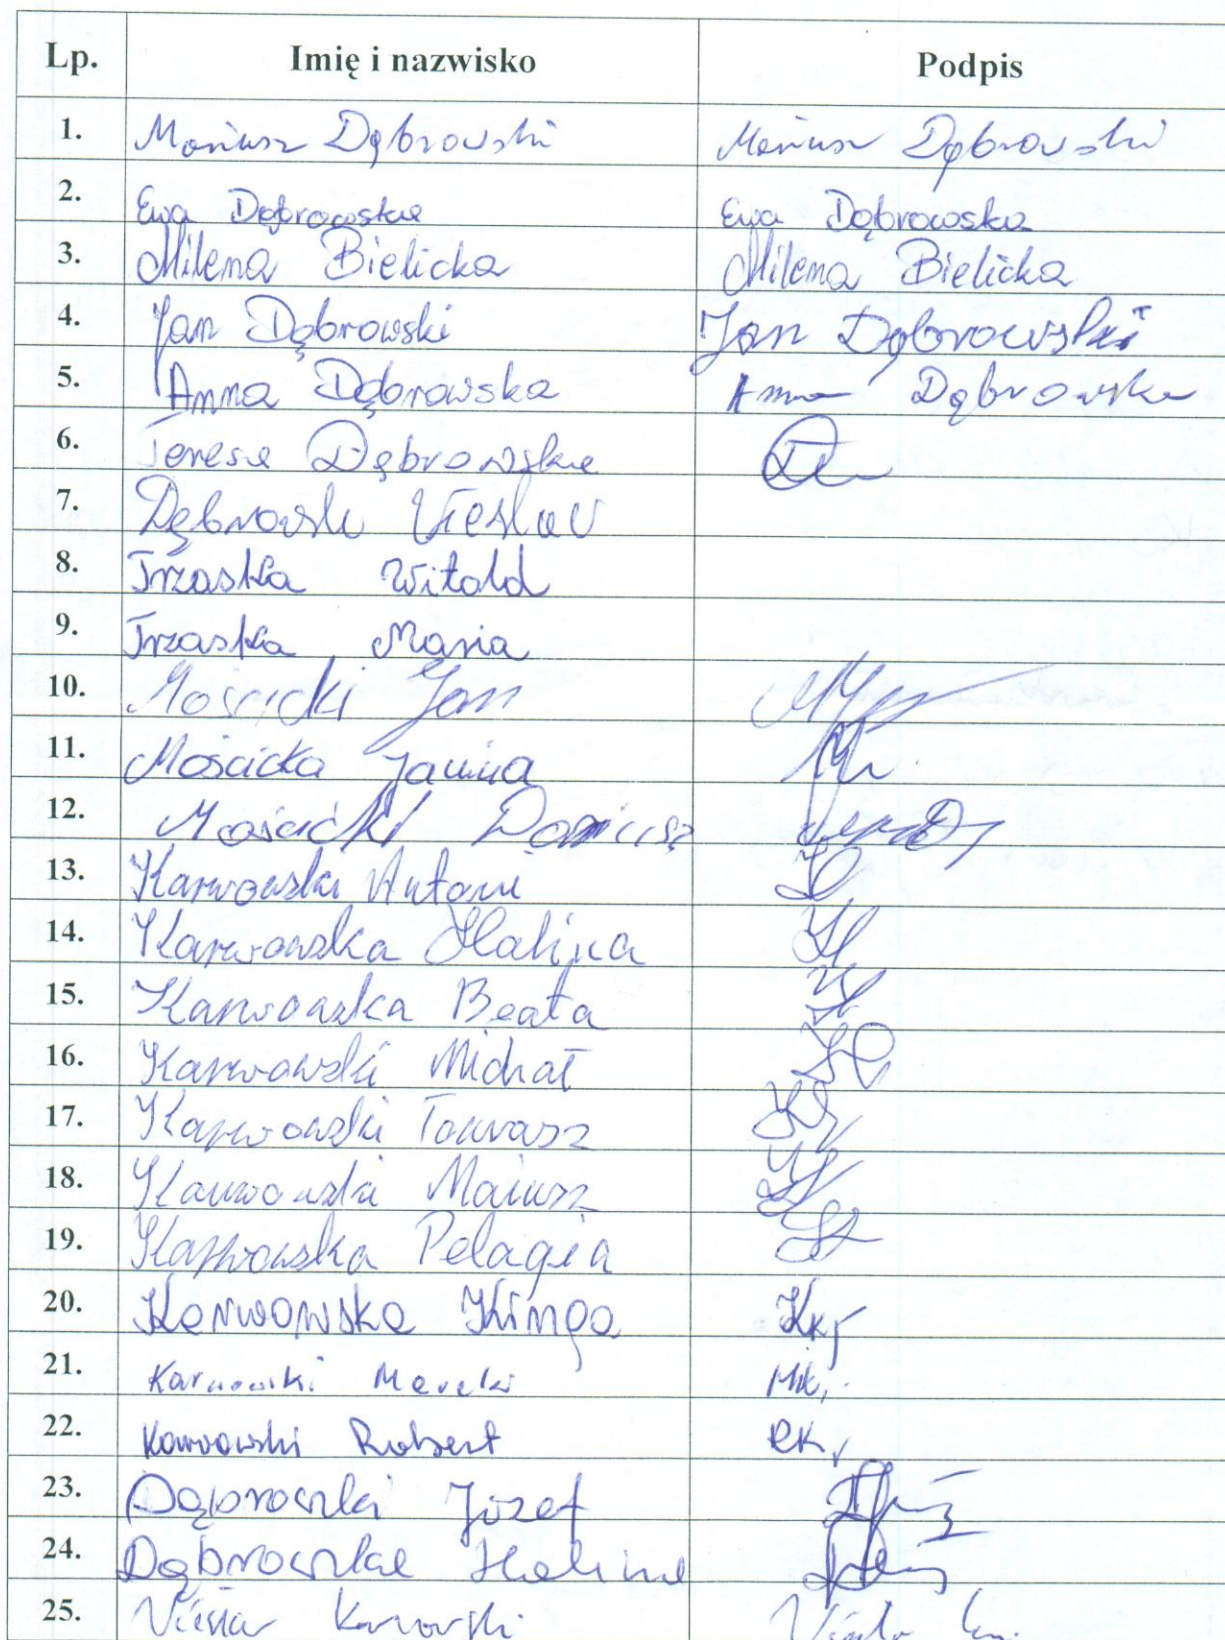 Lp. Imię i nazwisko Podpis
1. Mariusz Dąbrowski Mariusz Dąbrowski
2. Ewa Dąbrowska Ewa Dąbrowska
3. Milena Bielicka Milena Bielicka
4. Jan Dąbrowski Jan Dąbrowski
5. Anna Dąbrowska Anna Dąbrowska
6. Teresa Dąbrowska
7. Dąbrowski Wiesław
8. Trzaska Witold
9. Trzaska Maria
10. Mościcki Jan
11. Mościcka Janina
12. Mościcki Dariusz
13. Karwowski Antoni
14. Karwowska Halina
15. Karwowska Beata
16. Karwowski Michał
17. Karwowski Tomasz
18. Karwowski Mariusz
19. Karwowska Pelagia
20. Karwowska Kinga
21. Karwowski Marek
22. Karwowski Robert RK,
23. Dąbrowski Józef
24. Dąbrowska Halina
25. Karwowski